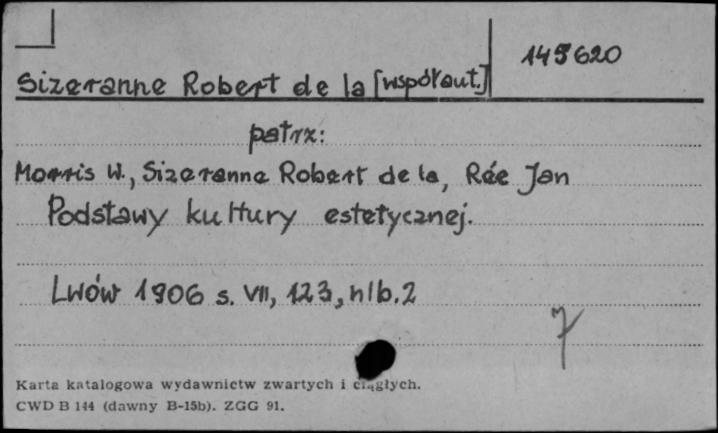 145620
Sizeranne Robert de la [współaut.]
patrz:
Morris W., Sizeranne Robert de la, Rée Jan
Podstawy kultury estetycznej.
Lwów 1906 s. VII, 123, nlb. 2
7
Karta katalogowa wydawnictw zwartych i ciągłych.
CWD B 144 (dawny B-15b). ZGG 91.